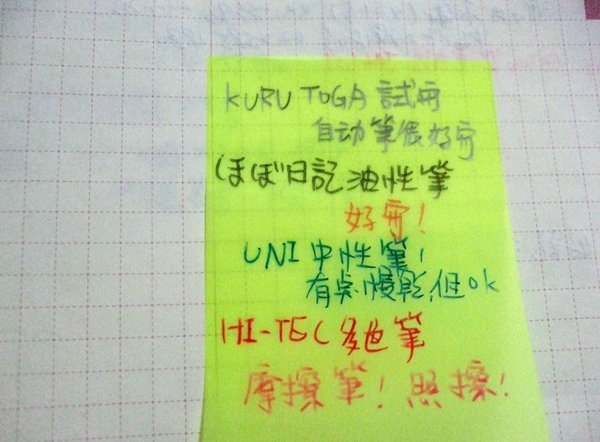 KURU TOGA 試用
自动筆很好用
ほぼ日記 油性筆
好用!
UNI 中性筆!
有點慢乾,但ok
HI-TEC 多色筆
摩擦筆! 照擦!